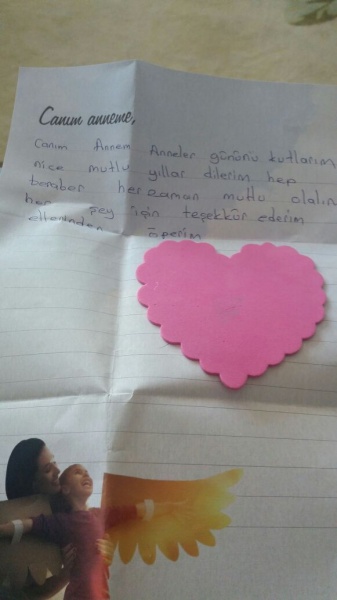 Canım anneme,
Canım Annem Anneler gününü kutlarım
nice mutlu yıllar dilerim hep
beraber her zaman mutlu olalım
her şey için teşekkür ederim
ellerinden öperim